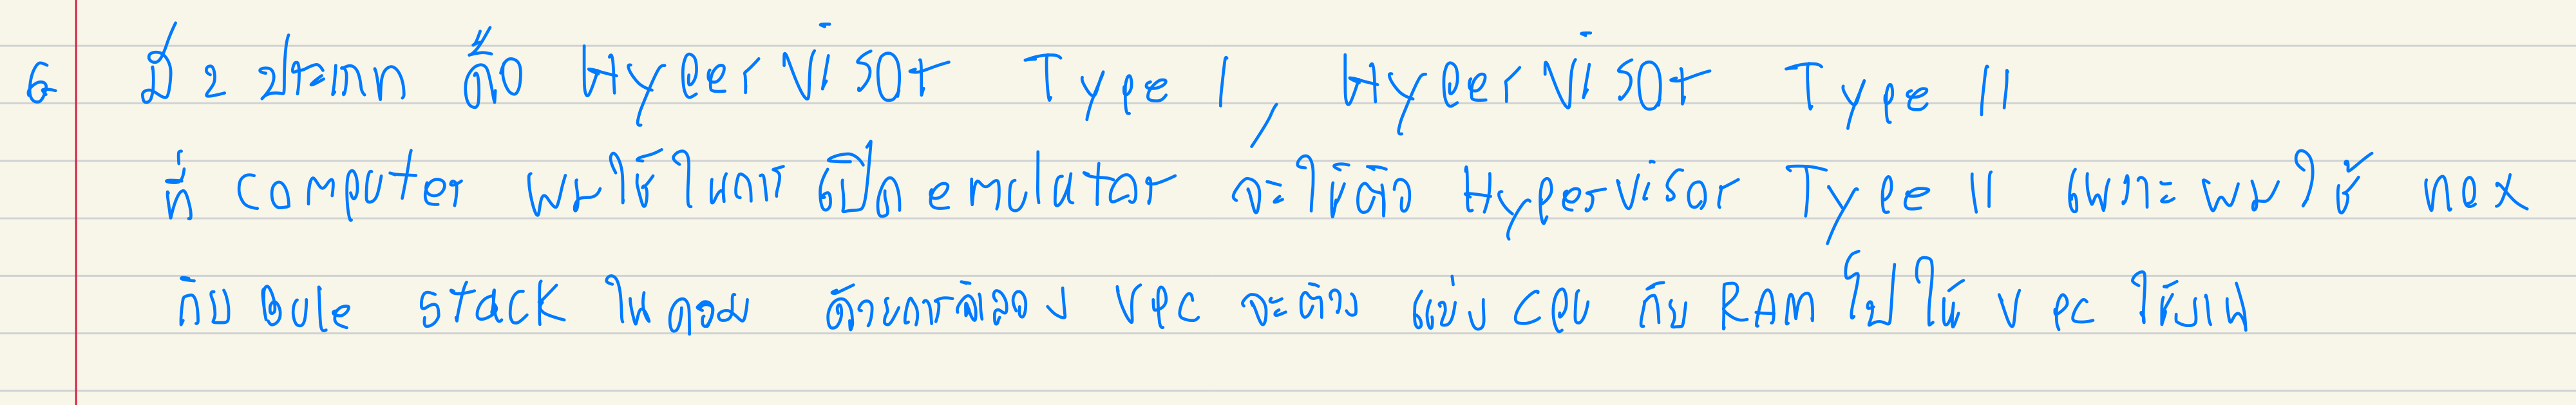 6 มี 2 ประเภท คือ Hypervisor Type I, Hypervisor Type II
ที่ computer ผมใช้ในการเปิด emulator จะใช้ตัว Hypervisor Type II เพราะผมใช้ nox
กับ Blue stack ในคอม ด้วยการจำลอง vpc จะต้อง แบ่ง CPU กับ RAM ไปให้ v pc ใช้งาน